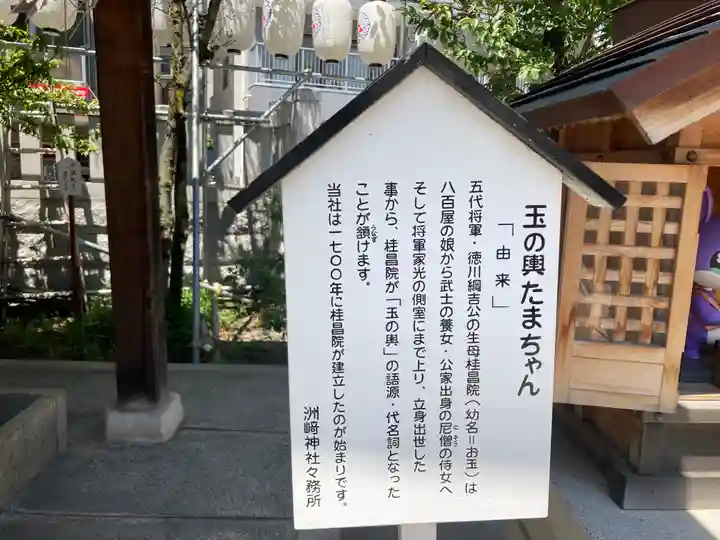 玉の輿たまちゃん
「由来」
五代将軍・徳川綱吉公の生母桂昌院（幼名＝お玉）は
八百屋の娘から武士の養女・公家出身の尼僧の侍女へ
そして将軍家光の側室にまで上り、立身出世した
事から、桂昌院が「玉の輿」の語源・代名詞となった
ことが頷けます。
当社は一七〇〇年に桂昌院が建立したのが始まりです。
洲崎神社々務所